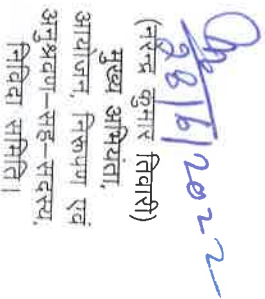 28/6/2022
(नरेन्द्र कुमार तिवारी)
मुख्य अभियंता,
आयोजन, निरूपण एवं
अनुश्रवण-सह-सदस्य,
निविदा समिति।